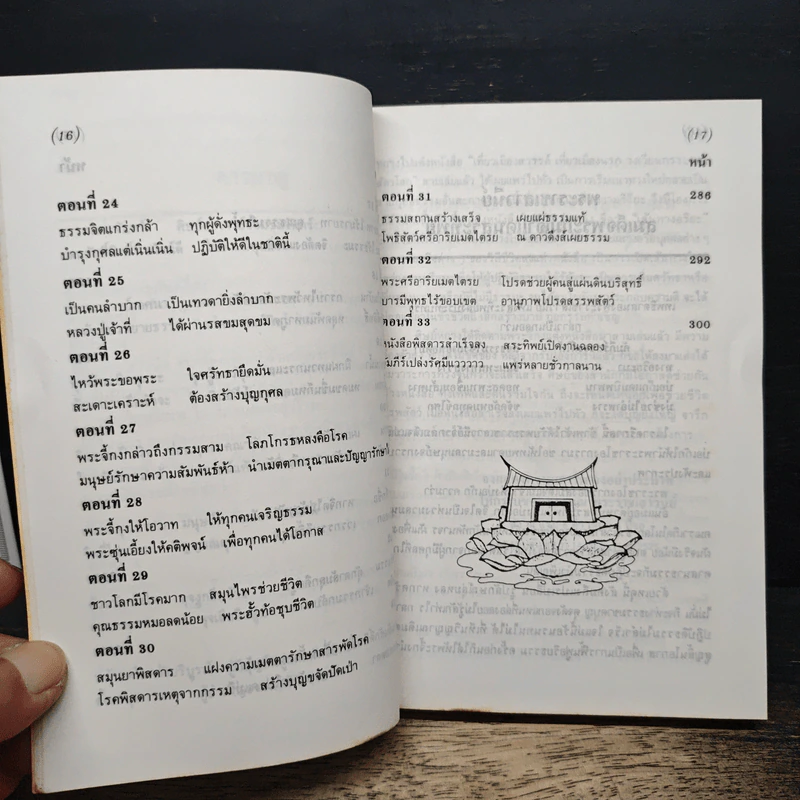 (16)
ตอนที่ 24
ธรรมจิตแกร่งกล้า ทุกผู้ดั่งพุทธะ
บำรุงกุศลแต่เนิ่นเนิ่น ปฏิบัติให้ดีในชาตินี้
ตอนที่ 25
เป็นคนลำบาก เป็นเทวดายิ่งลำบาก
หลวงปู่เจ้าที่ ได้ผ่านรสขมสุดขม
ตอนที่ 26
ไหว้พระขอพระ ใจศรัทธายึดมั่น
สะเดาะเคราะห์ ต้องสร้างบุญกุศล
ตอนที่ 27
พระจี้กงกล่าวถึงกรรมสาม โลภโกรธหลงคือโรค
มนุษย์รักษาความสัมพันธ์ห้า นำเมตตากรุณาและปัญญารักษา
ตอนที่ 28
พระจี้กงให้โอวาท ให้ทุกคนเจริญธรรม
พระซุ่นเอี้ยงให้คติพจน์ เพื่อทุกคนได้โอกาส
ตอนที่ 29
ชาวโลกมีโรคมาก สมุนไพรช่วยชีวิต
คุณธรรมหมอลดน้อย พระฮั้วท้อชุบชีวิต
ตอนที่ 30
สมุนยาพิสดาร แฝงความเมตตารักษาสารพัดโรค
โรคพิสดารเหตุจากกรรม สร้างบุญขจัดปัดเป่า
(17)
หน้า
ตอนที่ 31 286
ธรรมสถานสร้างเสร็จ เผยแผ่ธรรมแท้
โพธิสัตว์ศรีอาริยเมตไตรย ณ ดาวดึงส์เผยธรรม
ตอนที่ 32 292
พระศรีอาริยเมตไตรย โปรดช่วยผู้คนสู่แผ่นดินบริสุทธิ์
บารมีพุทธไร้ขอบเขต อานุภาพโปรดสรรพสัตว์
ตอนที่ 33 300
หนังสือพิสดารสำเร็จลง สระทิพย์เปิดงานฉลอง
คัมภีร์เปล่งรัศมีแวววาว แพร่หลายชั่วกาลนาน